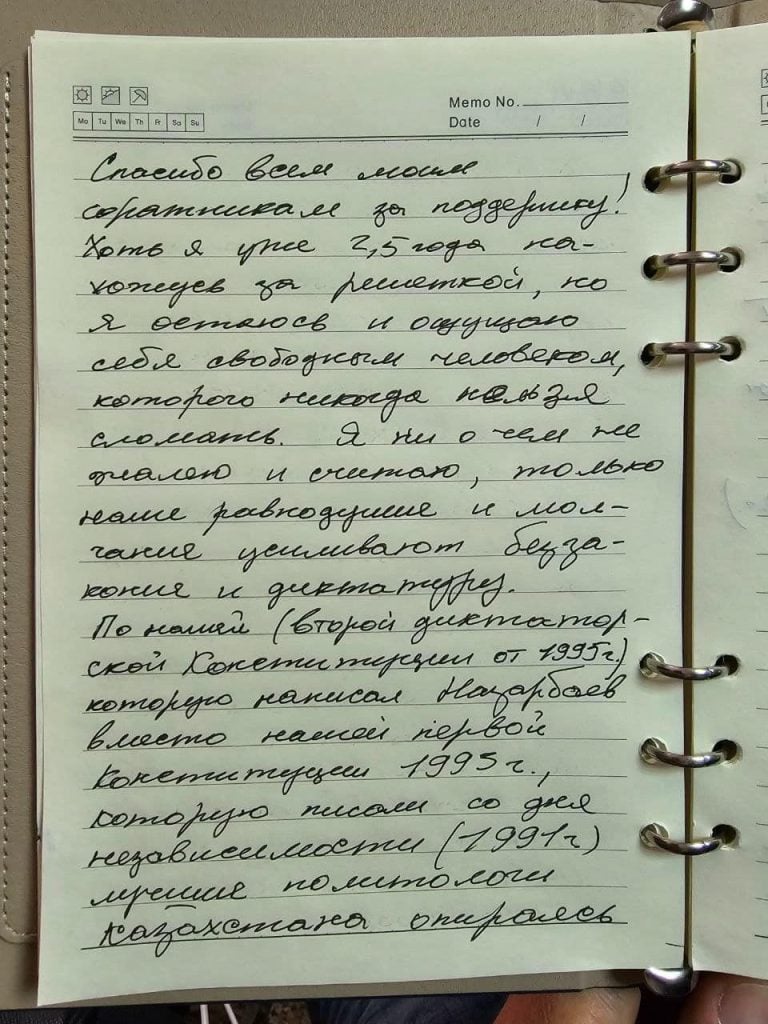 Memo No.
Mo Tu We Th Fr Sa Su
Date / /
Спасибо всем моим
соратникам за поддержку!
Хоть я уже 2,5 года на-
хожусь за решеткой, но
я остаюсь и ощущаю
себя свободным человеком,
которого никогда нельзя
сломать. Я ни о чем не
жалею и считаю, только
наше равнодушие и мол-
чание усиливают безза-
коние и диктатуру.
По нашей (второй диктатор-
ской Конституции от 1995г.)
которую написал Назарбаев
вместо нашей первой
Конституции 1993г.,
которую писали со дня
независимости (1991г)
лучшие политологи
Казахстана опираясь